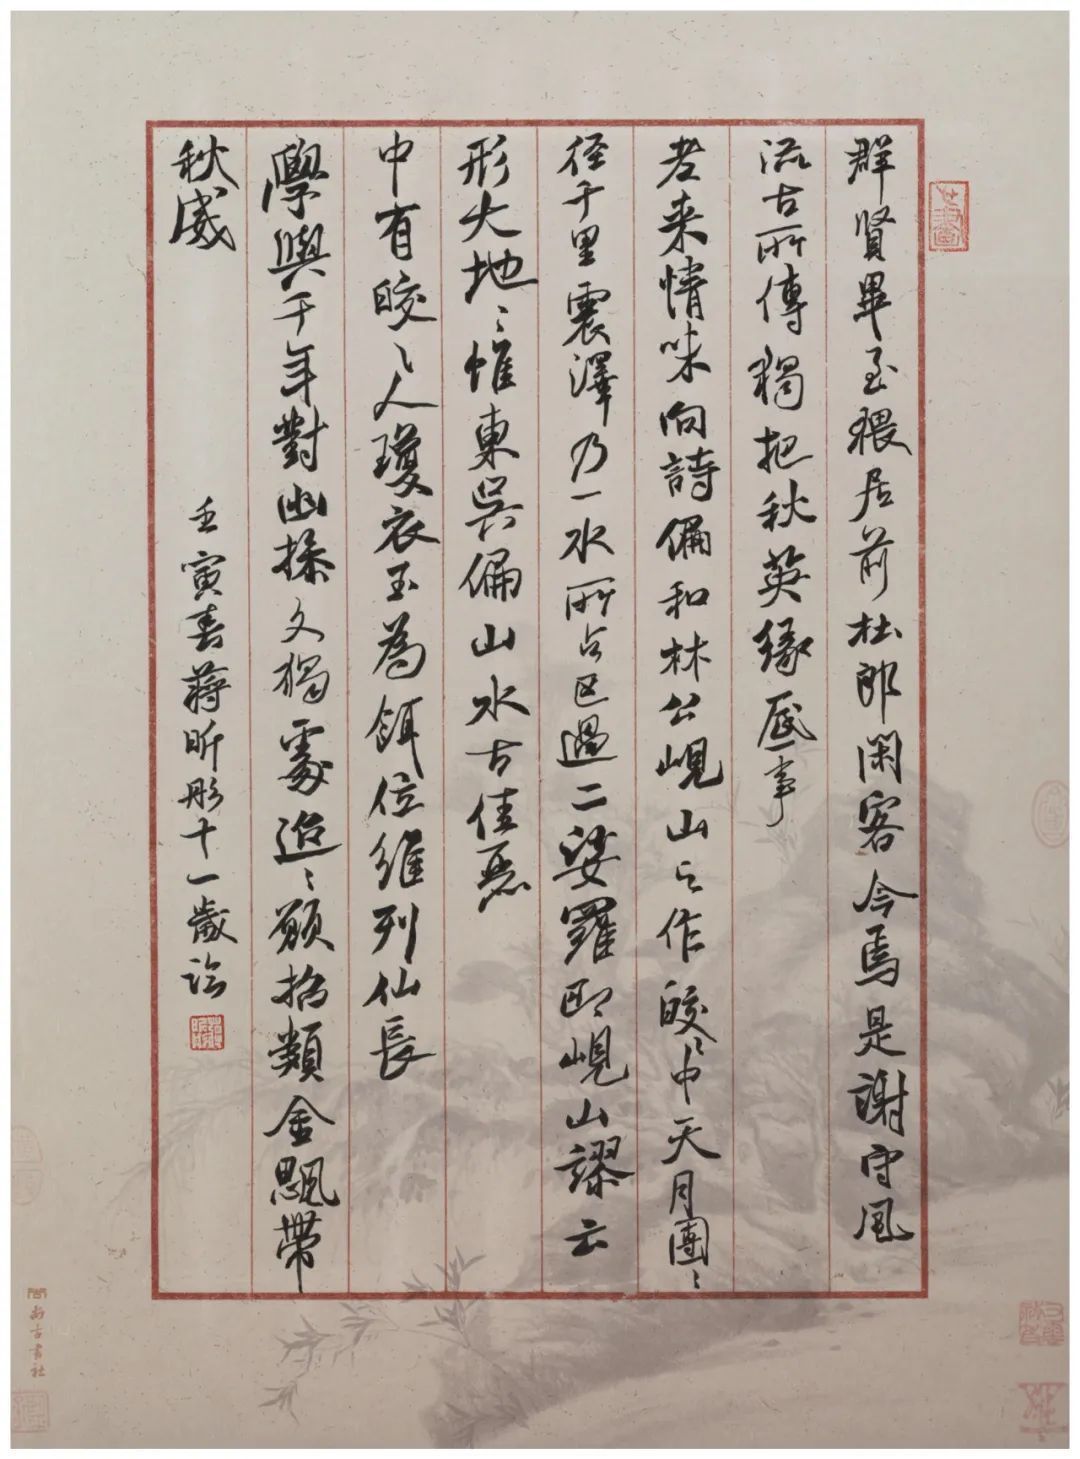 群賢畢至猥居前杜郎閑客今焉是謝守風
流古所傳獨把秋英緣底事
老来情味向詩偏和林公峴山之作皎〻中天月團〻
径千里震澤乃一水所占已過二娑羅即峴山謬云
形大地〻惟東吳偏山水古佳麗
中有皎〻人瓊衣玉為餌位維列仙長
學與千年對幽操久獨處迢〻願招類金飆帶
秋威
壬寅春蔣昕彤十一歲臨
尚古書社